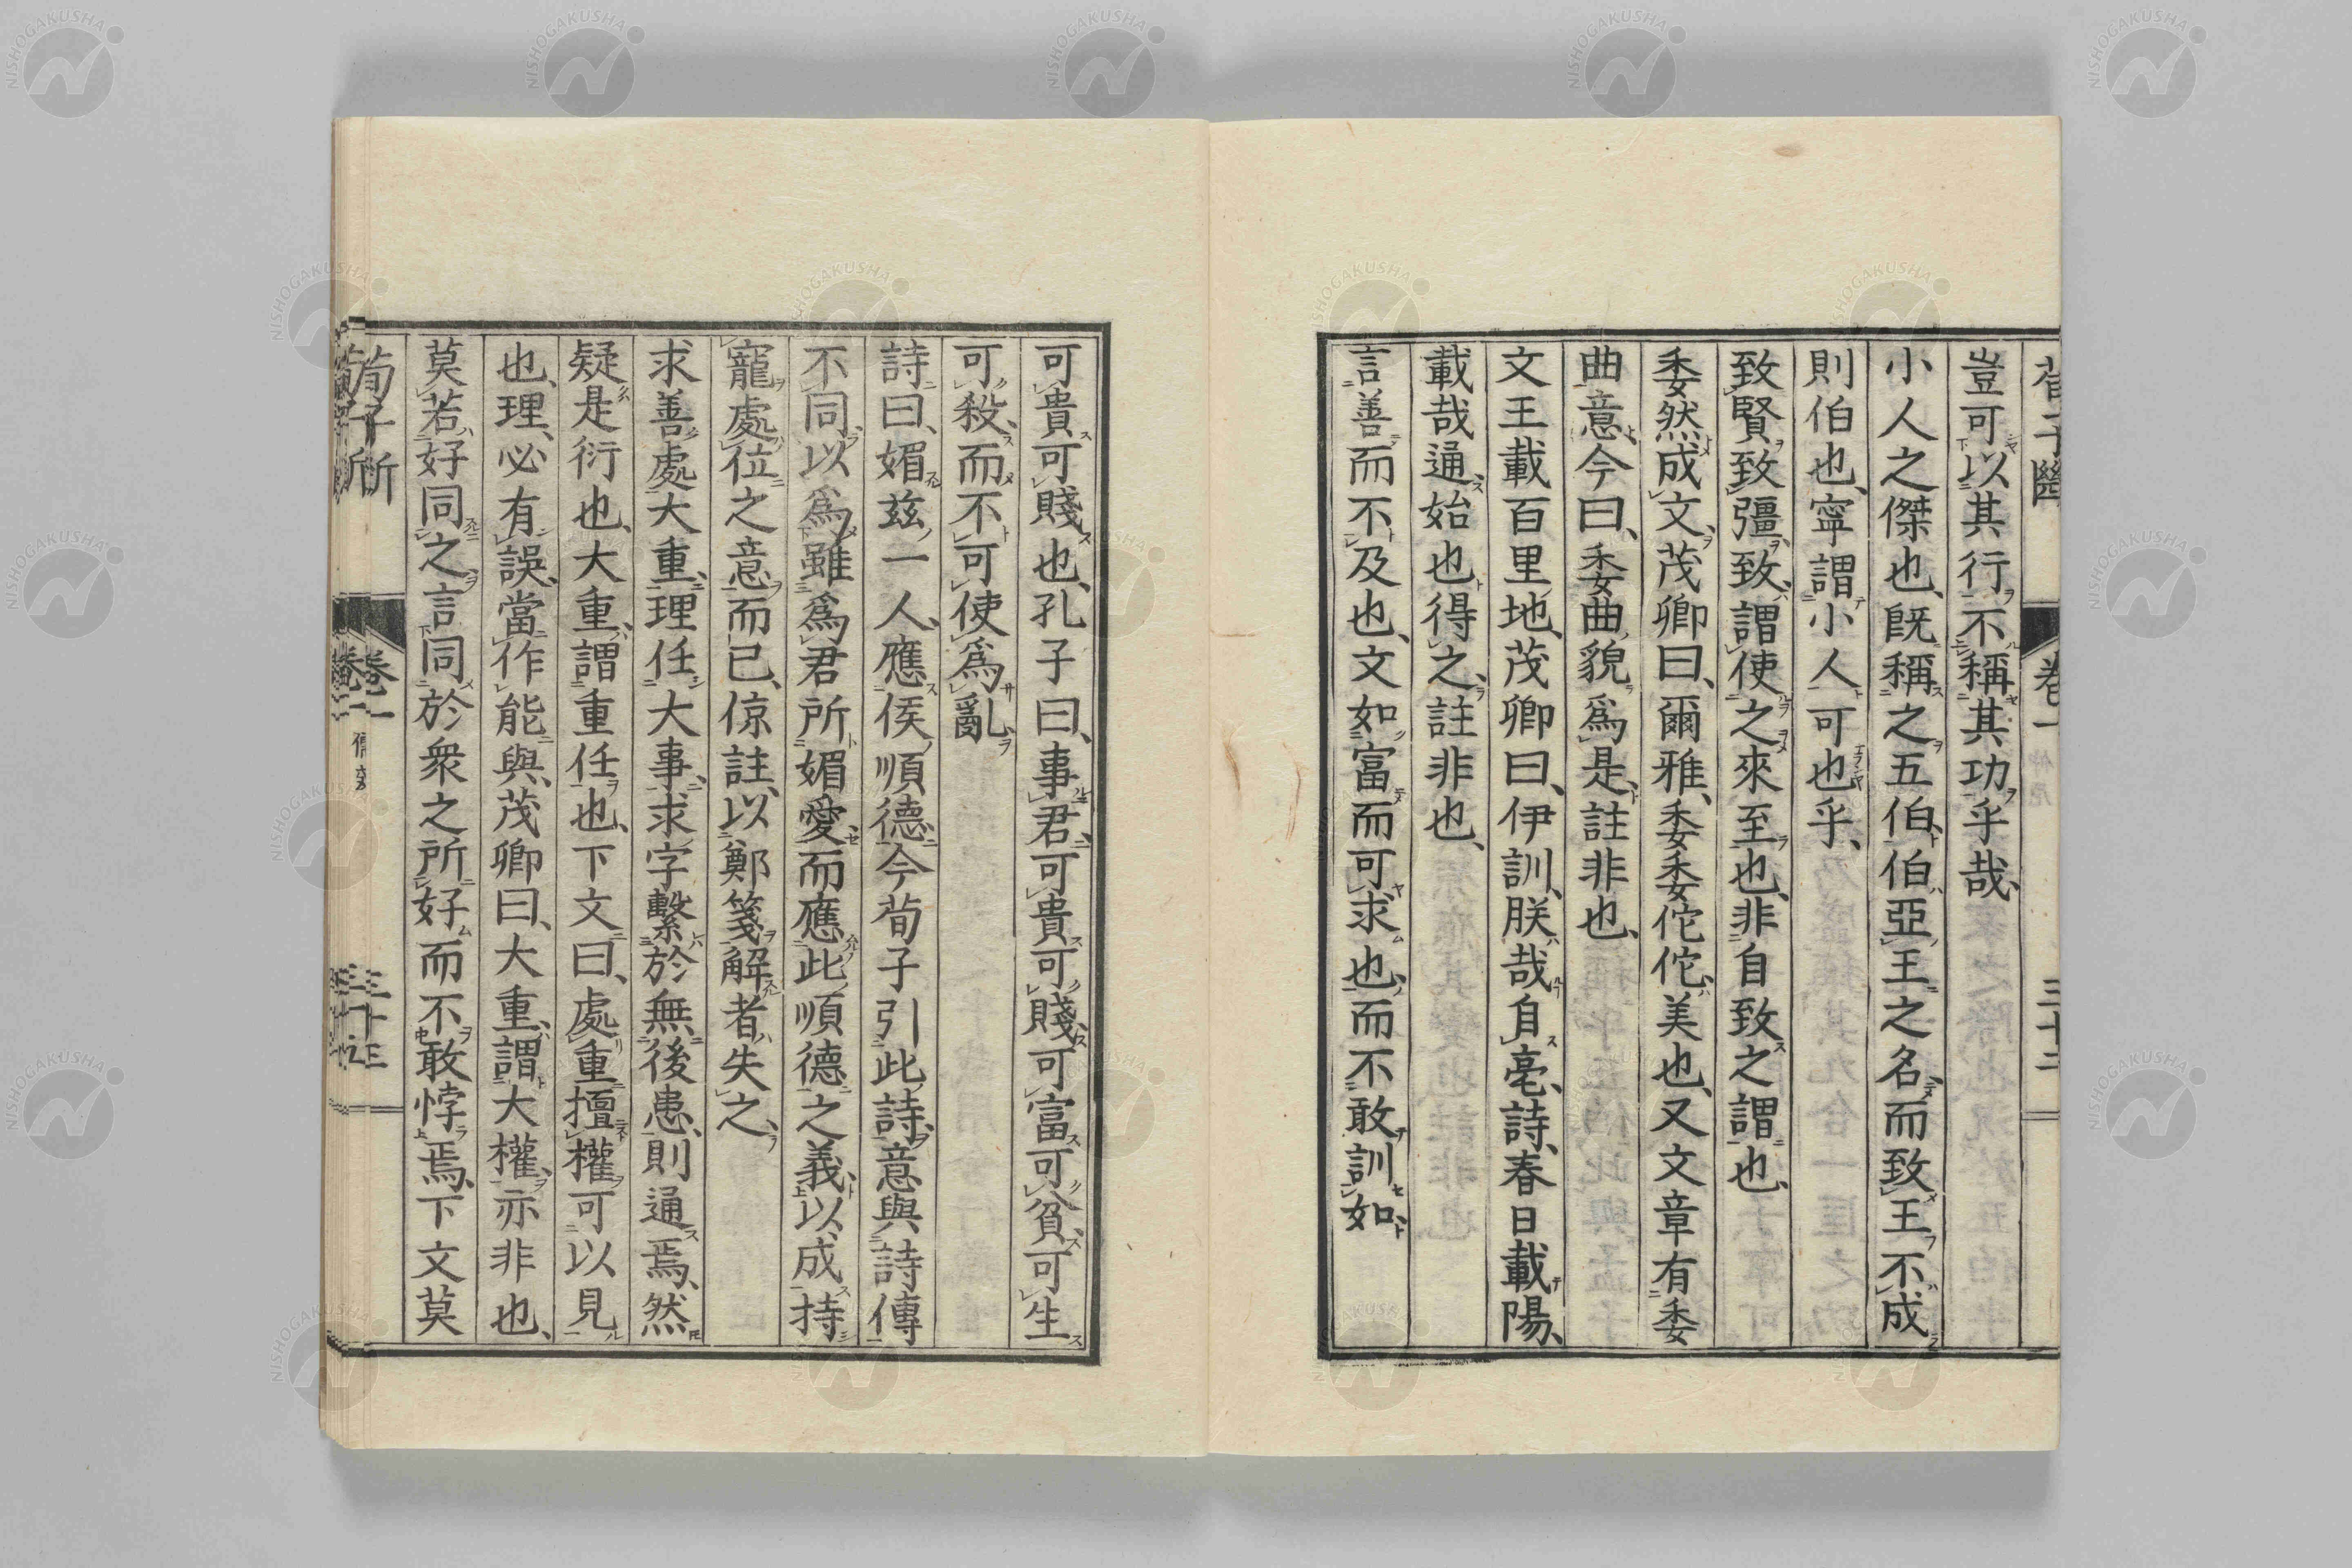 豈可以其行不稱其功乎哉
小人之傑也、既稱之五伯、伯亞王之名、而致王不成
則伯也、寧謂小人可也乎、
致賢致彊、致、謂使之來至也、非自致之謂也、
委然成文、茂卿曰、爾雅、委委佗佗、美也、又文章有委
曲意、今曰、委曲貌爲是、註非也、
文王載百里地、茂卿曰、伊訓、朕哉自亳、詩、春日載陽、
載哉通、始也、得之、註非也、
言善而不及也、文如富而可求也、而不敢訓如
可貴可賤也、孔子曰、事君可貴可賤、可富可貧、可生
可殺、而不可使爲亂
詩曰、媚茲一人、應侯順德、今荀子引此詩、意與詩傳
不同、以爲雖爲君所媚愛、而應此順德之義、以成持
寵處位之意而已、倞註、以鄭箋解者失之、
求善處大重、理任大事、求字繫於無後患、則通焉、然
疑是衍也、大重、謂重任也、下文曰、處重擅權可以見
也、理、必有誤、當作能與、茂卿曰、大重、謂大權、亦非也、
莫若好同之、言同於衆之所好、而不敢悖焉、下文莫
卷一